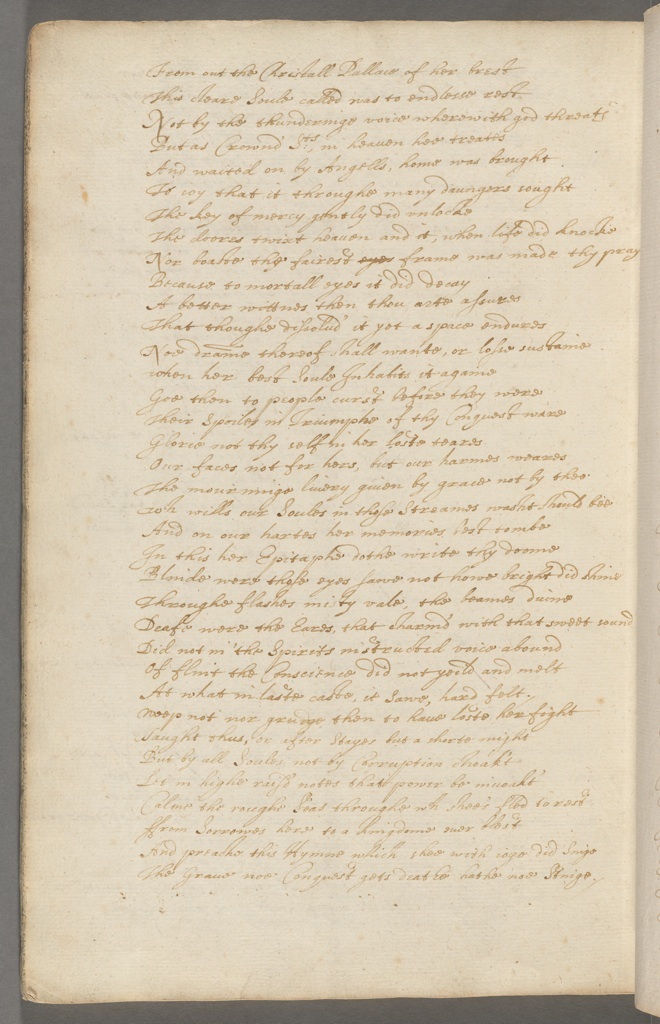 From out the Christall Pallace of her brest
This cleare Soule called was to endlesse rest
Not by the thunderinge voice wherewith god threats
But as Crownd Sts, in heaven hee treates
And waited on by Angells, home was brought
To ioy that it throughe many daungers sought
The key of mercy gently did vnlocke
The doores twixt heaven and it, when life did knocke
Nor boaste the fairest eyes frame was made thy pray
Because to mortall eyes it did decay
A better wittnes then thou arte assures
That thoughe dissolud it yet a space endures
Noe drame thereof shall wante, or losse sustaine
when her best Soule Inhabits it againe
Goe then to people curst before they were
Their Spoiles in Triumphe of thy Conquest ware
Glorie not thy self in her hotte teares
Our faces not for hers, but our harmes weares
The mourninge livery given by grace not by thee
wh wills our Soules in these Streames washt should bee
And on our hartes her memories best tombe
In this her Epitaphe dothe write thy doome
Blinde were those eyes sawe not howe bright did shine
Throughe fleshes misty vale, the beames divine
Deafe were the Eares, that charmd with that sweet sound
Did not in the Spirits instructed voice abound
Of flint the Conscience did not yeild and melt
At what in laste caste, it sawe, hard felt,
weep not nor grudge then to have loste her sight
taught thus, our after Stayes but a shorte night
But by all Soules not by Corruption Choakt
Let in highe raisd notes that power be invoakt
Calme the roughe Seas throughe wh shee's sled to rest
ffrom Sorrowes here to a kingdome ever blest
And preache this Hymne which shee with ioye did Singe
The Grave noe Conquest gets deathe hathe noe Stinge,